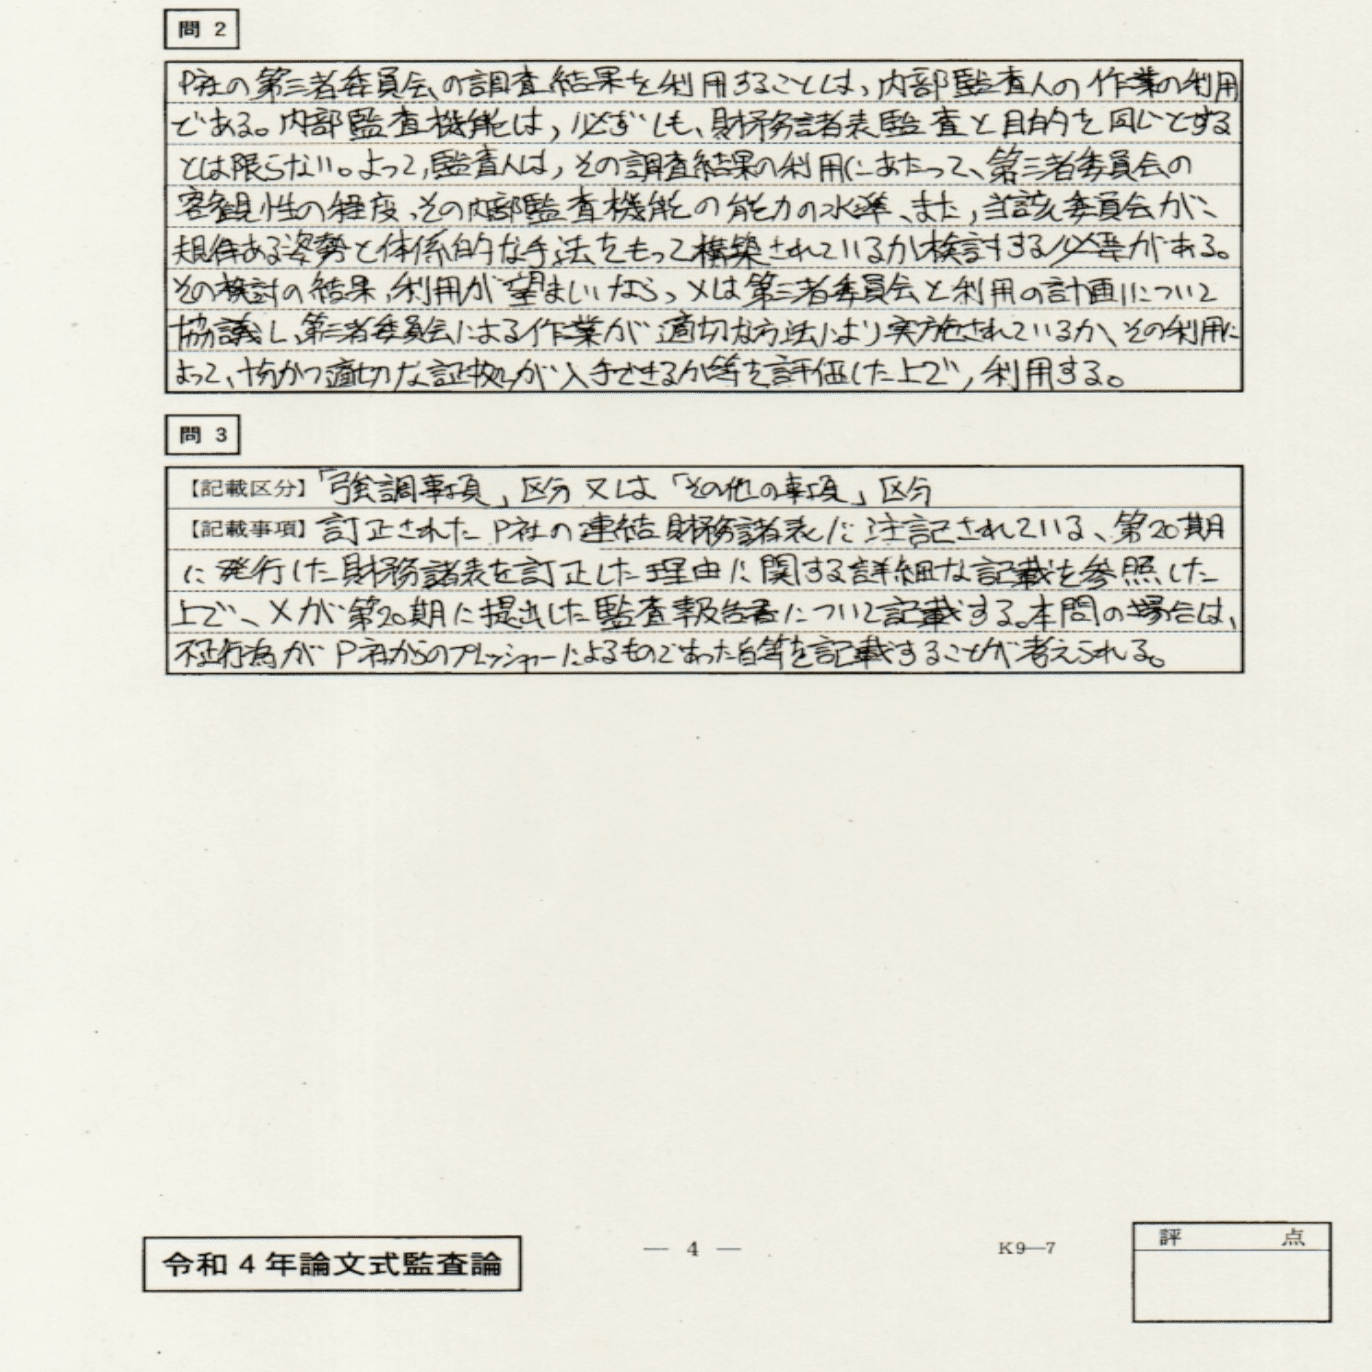 問 2
P社の第三者委員会の調査結果を利用することは、内部監査人の作業の利用
である。内部監査機能は、必ずしも、財務諸表監査と目的を同じとする
とは限らない。よって、監査人は、その調査結果の利用にあたって、第三者委員会の
客観性の程度、その内部監査機能の能力の水準、また、当該委員会が、
規律ある姿勢と体系的な手法をもって構築されているか検討する必要がある。
その検討の結果、利用が望ましいなら、Xは第三者委員会と利用の計画について
協議し、第三者委員会による作業が適切な方法により実施されているか、その利用に
よって、十分かつ適切な証拠が入手できるか等を評価した上で、利用する。
問 3
【記載区分】「強調事項」区分 又は「その他の事項」区分
【記載事項】訂正されたP社の連結財務諸表に注記されている、第20期
に発行した財務諸表を訂正した理由に関する詳細な記載を参照した
上で、Xが第20期に提出した監査報告書について記載する。本問の場合は、
不正行為がP社からのプレッシャーによるものであった旨等を記載することが考えられる。
令和 4 年論文式監査論
— 4 —
K9—7
評 点